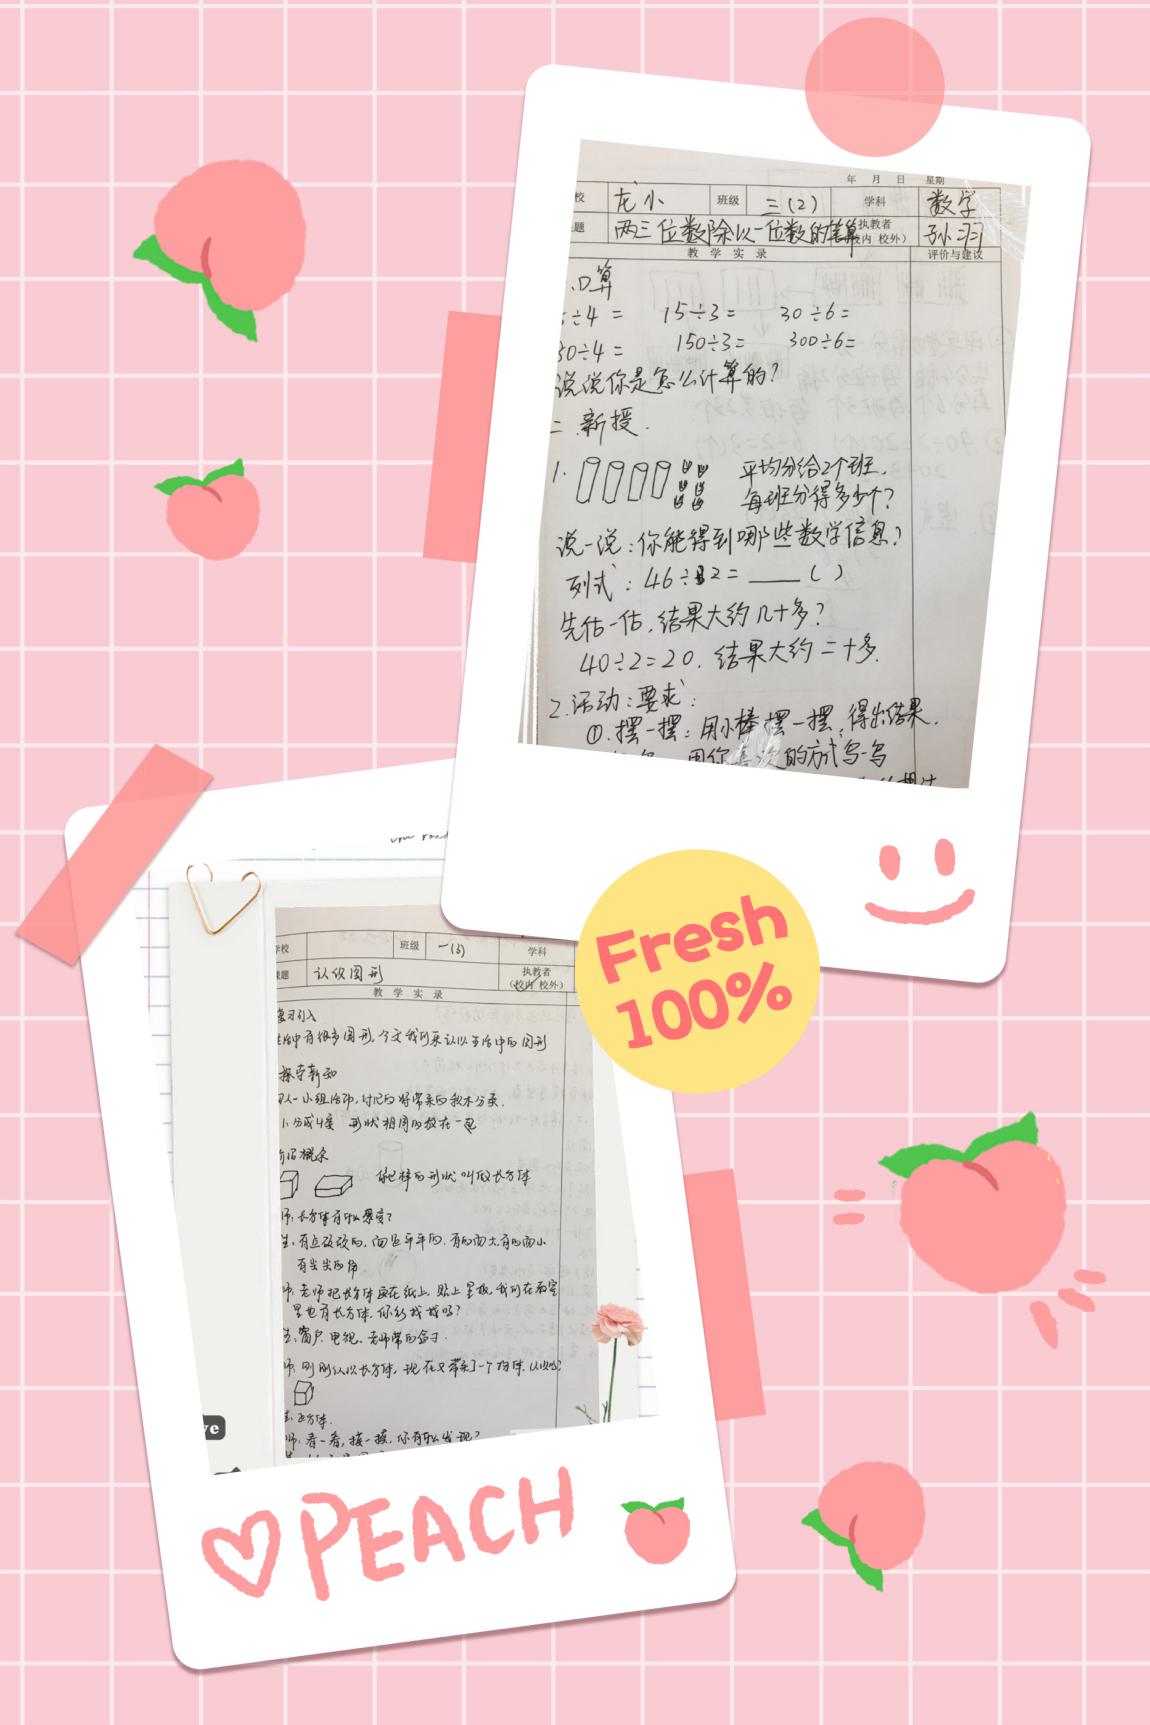 年 月 日 星期
校 龙小 班级 三(2) 学科 数学
题 两三位数除以一位数的笔算 执教者 孙羽
(校内 校外)
教 学 实 录 评价与建议
口算
÷4= 15÷3= 30÷6=
0÷4= 150÷3= 300÷6=
说说你是怎么计算的?
二.新授.
1. 平均分给2个班.
每班分得多少个?
说一说:你能得到哪些数学信息?
列式:46÷2=____( )
先估一估,结果大约几十多?
40÷2=20.结果大约二十多.
2.活动:要求:
①.摆一摆:用小棒摆一摆,得出结果.
用你喜欢的方式写一写
Fresh
100%
学校 班级 一(3) 学科
课题 认识图形 执教者
(校内 校外)
教 学 实 录
复习引入
生活中有很多图形,今天我们来认识生活中的图形
探索新知
四人一小组活动,讨论的好带来的积木分类.
1.分成4类 形状相同的放在一起
介绍概念
像这样的形状叫做长方体
师:长方体有什么感受?
生:有点硬硬的,面是平平的.有的面大,有的面小
有尖尖的角
师:老师把长方体画在纸上,贴上黑板,我们在教室
里也有长方体,你能找找吗?
生:窗户、电视、老师带的盒子.
师:刚刚认识长方体,现在又带来了一个物体,认识吗?
生:正方体.
师:看一看,摸一摸,你有什么发现?
ve
PEACH